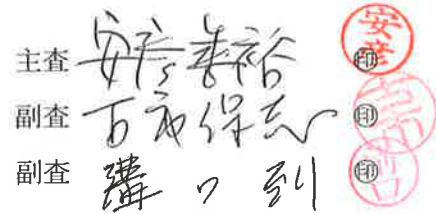 主査 安彦善裕 安彦 印
副査 古市保志 印
副査 溝口到 印